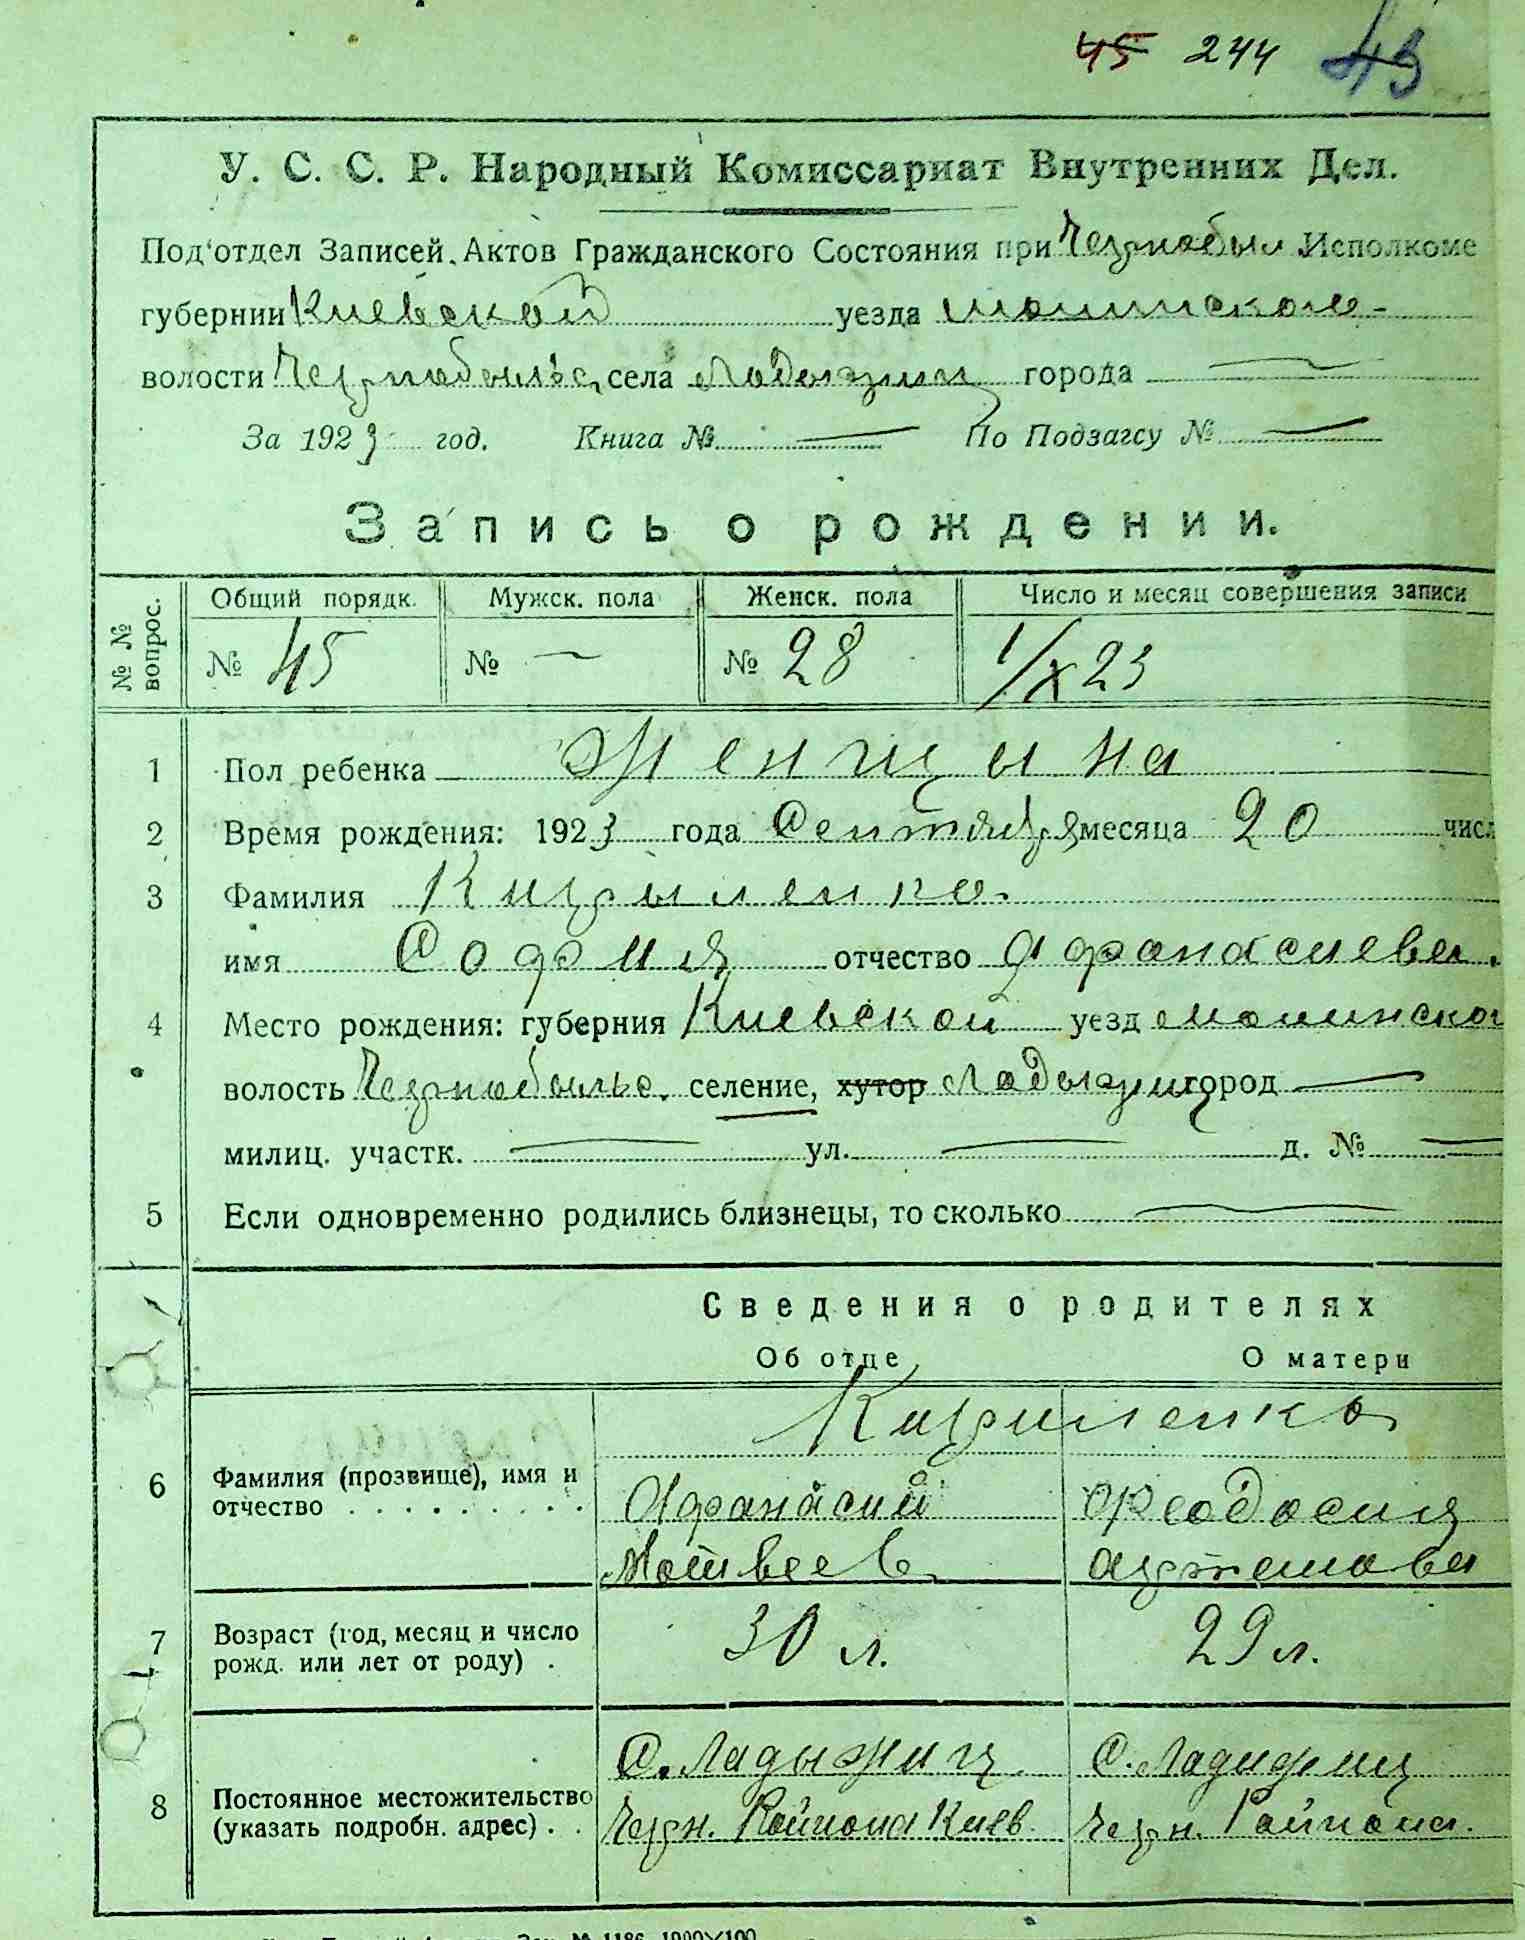 45 244 43
У. С. С. Р. Народный Комиссариат Внутренних Дел.
Под'отдел Записей Актов Гражданского Состояния при Чернобыл. Исполкоме
губернии Киевской уезда малинского
волости Чернобыльс. села Ладыжич города —
За 1923 год. Книга № — По Подзагсу № —
Запись о рождении.
№ № вопрос. Общий порядк. Мужск. пола Женск. пола Число и месяц совершения записи
№ 45 № — № 28 1/X 23
1 Пол ребенка женщына
2 Время рождения: 1923 года Сентября месяца 20 числ
3 Фамилия Кирыленко
имя София отчество Афанасиева.
4 Место рождения: губерния Киевской уезд малинског
волость Чернобыльс. селение, хутор Ладыжич город —
милиц. участк. — ул. — д. № —
5 Если одновременно родились близнецы, то сколько —
Сведения о родителях
Об отце О матери
Кириленко
6 Фамилия (прозвище), имя и отчество . . . . . . . . . Афанасий Феодосия
Матвеев Артемова
7 Возраст (год, месяц и число рожд. или лет от роду) . 30 л. 29 л.
8 Постоянное местожительство (указать подробн. адрес) . . С. Ладыжич С. Ладижич
Черн. Района Киев. Черн. Района.
№ 1186 1000×100